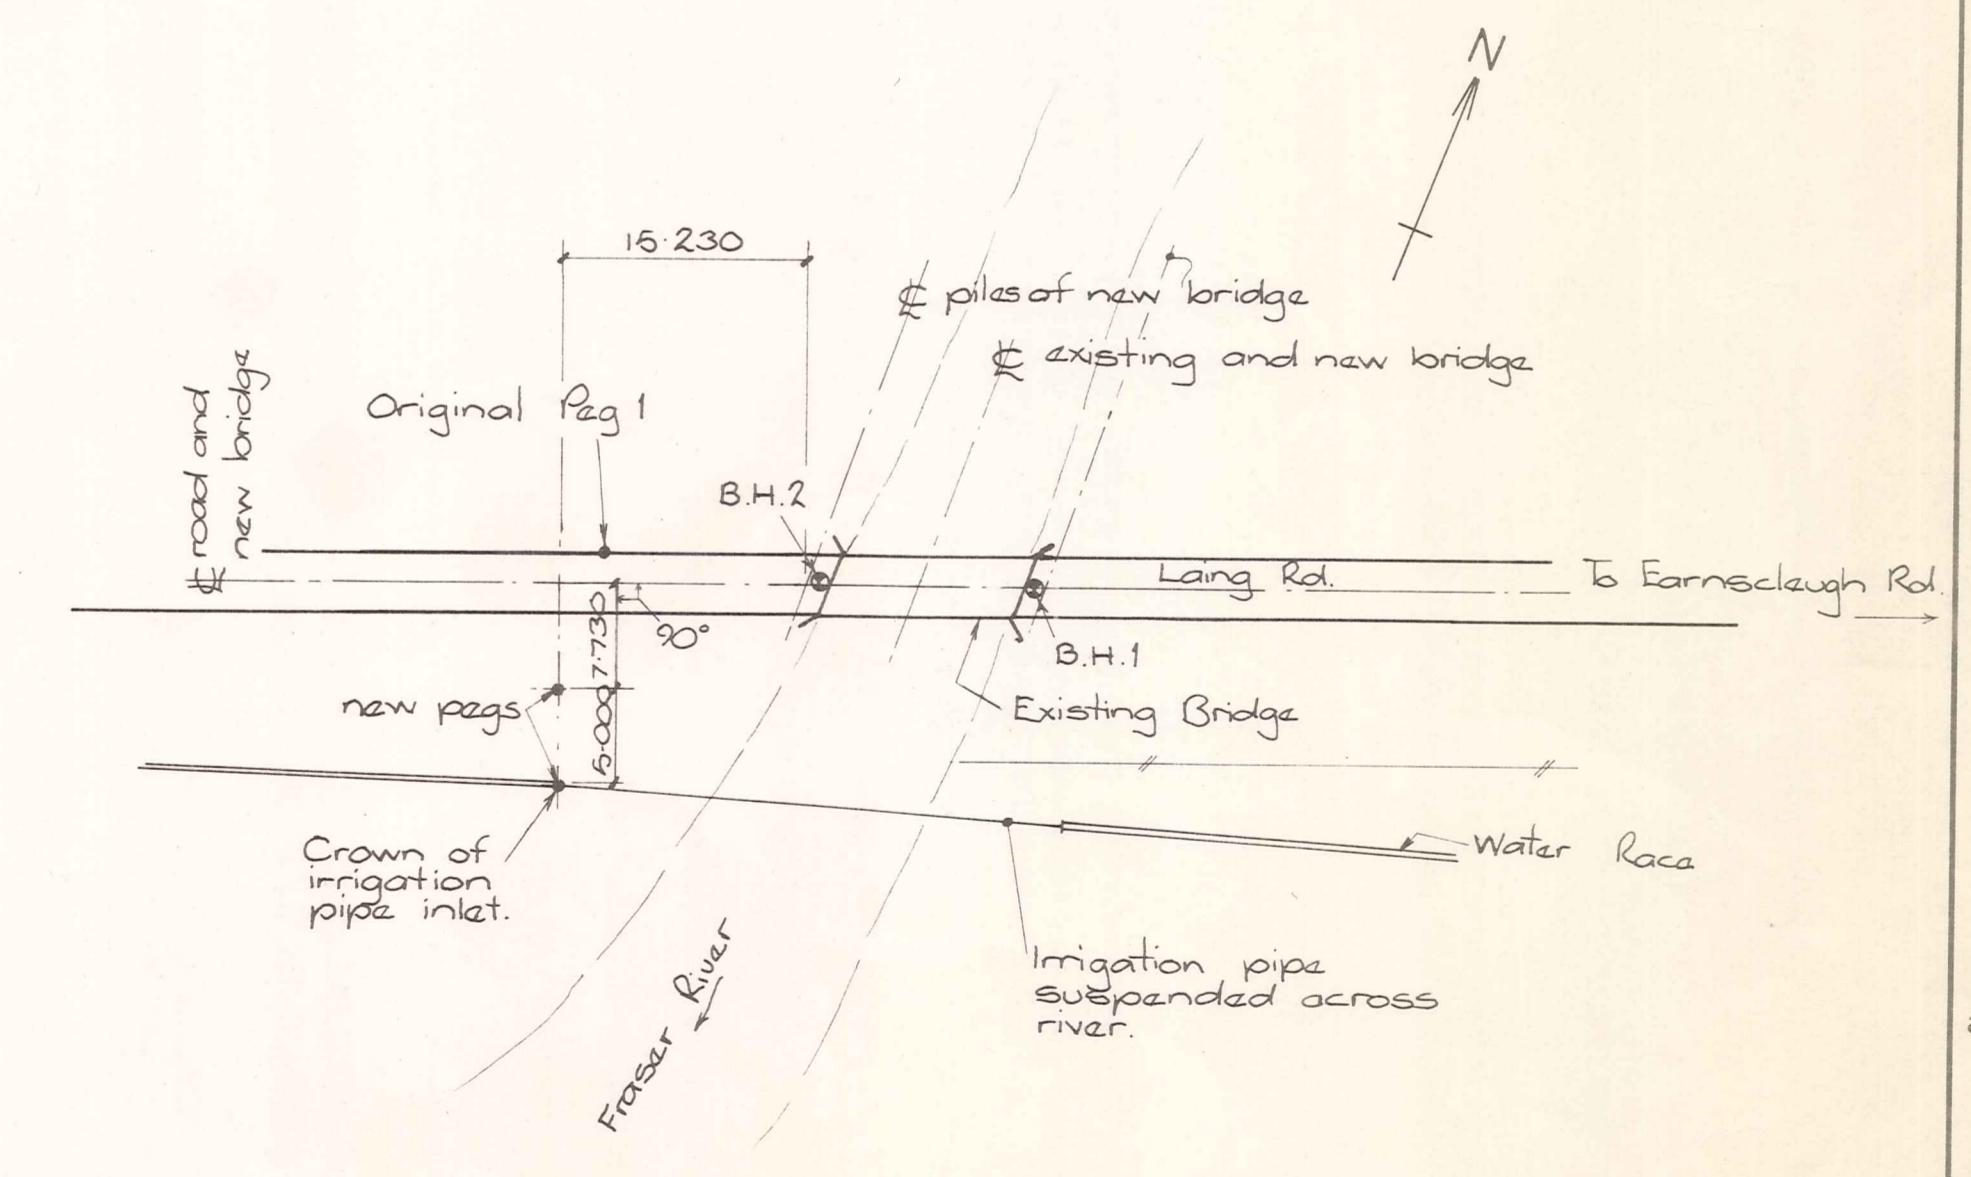 N
15·230
℄ piles of new bridge
℄ existing and new bridge
℄ road and
new bridge
Original Peg 1
B.H.2
Laing Rd.
To Earnscleugh Rd.
90°
7·730
B.H.1
new pegs
5·000
Existing Bridge
Crown of
irrigation
pipe inlet.
Water Race
Irrigation pipe
suspended across
river.
Fraser River